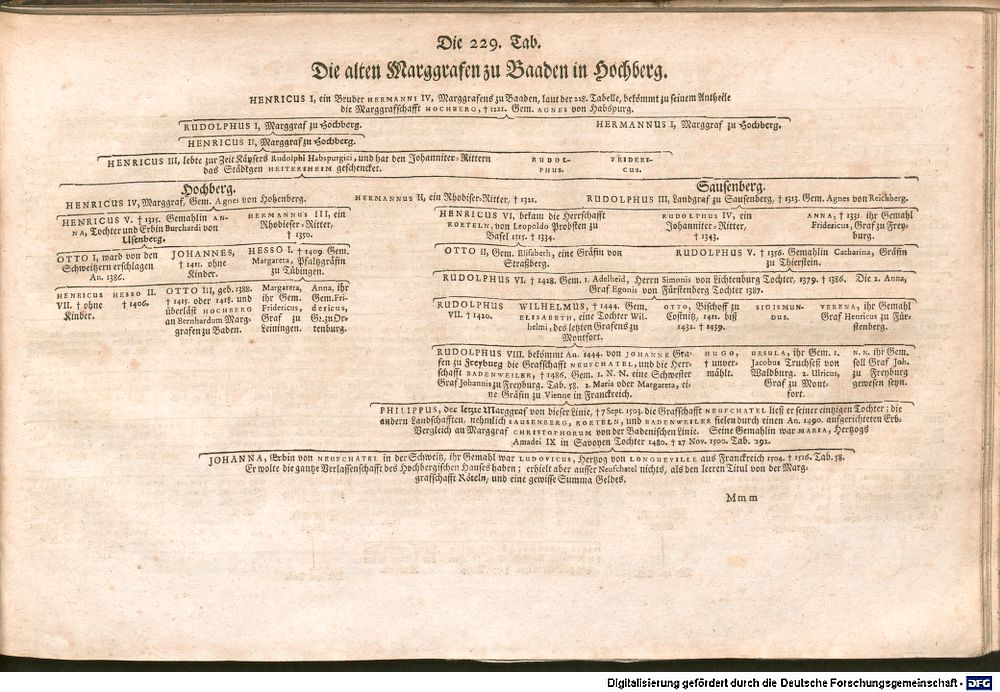 Die 229. Tab.
Die alten Marggrafen zu Baaden in Hochberg.
HENRICUS I, ein Bruder HERMANNI IV, Marggrafens zu Baaden, laut der 228. Tabelle, bekömmt zu seinem Antheile
die Marggrafschafft HOCHBERG, † 1221. Gem. AGNES von Habspurg.
RUDOLPHUS I, Marggraf zu Hochberg.
HERMANNUS I, Marggraf zu Hochberg.
HENRICUS II, Marggraf zu Hochberg.
HENRICUS III, lebte zur Zeit Käysers Rudolphi Habspurgici, und hat den Johanniter-Rittern
das Städtgen HEITERSHEIM geschencket.
RUDOL-
PHUS.
FRIDERI-
CUS.
Hochberg.
HENRICUS IV, Marggraf, Gem. Agnes von Hohenberg.
HERMANNUS II, ein Rhodiser-Ritter, † 1321.
Sausenberg.
RUDOLPHUS III, Landgraf zu Sausenberg, † 1313. Gem. Agnes von Reichberg.
HENRICUS V. † 1315. Gemahlin AN-
NA, Tochter und Erbin Burchardi von
Usenberg.
HERMANNUS III, ein
Rhodieser-Ritter,
† 1350.
HENRICUS VI, bekam die Herrschafft
ROETELN, von Leopoldo Probsten zu
Basel 1315. † 1334.
RUDOLPHUS IV, ein
Johanniter-Ritter,
† 1343.
ANNA, † 1331. ihr Gemahl
Fridericus, Graf zu Frey-
burg.
OTTO I, ward von den
Schweitzern erschlagen
An. 1386.
JOHANNES,
† 1411. ohne
Kinder.
HESSO I. † 1409 Gem.
Margareta, Pfaltzgräfin
zu Tübingen.
OTTO II, Gem. Elisabeth, eine Gräfin von
Straßberg.
RUDOLPHUS V. † 1356. Gemahlin Catharina, Gräfin
zu Thierstein.
HENRICUS
VII. † ohne
Kinder.
HESSO II.
† 1406.
OTTO III, geb. 1388.
† 1415. oder 1418. und
überläst HOCHBERG
an Bernhardum Marg-
grafen zu Baden.
Margareta,
ihr Gem.
Fridericus,
Graf zu
Leiningen.
Anna, ihr
Gem. Fri-
dericus,
Gr. zu Or-
tenburg.
RUDOLPHUS VI. † 1428. Gem. 1. Adelheid, Herrn Simonis von Lichtenburg Tochter, 1379. † 1386. Die 2. Anna,
Graf Egonis von Fürstenberg Tochter 1387.
RUDOLPHUS
VII. † 1420.
WILHELMUS, † 1444. Gem.
ELISABETH, eine Tochter Wil-
helmi, des letzten Grafens zu
Montfort.
OTTO, Bischoff zu
Costnitz, 1411. biß
1432. † 1439.
SIGISMUN-
DUS.
VERENA, ihr Gemahl
Graf Henricus zu Für-
stenberg.
RUDOLPHUS VIII. bekömmt An. 1444. von JOHANNE Gra-
fen zu Freyburg die Grafschafft NEUFCHATEL, und die Herr-
schafft BADENWEILER, † 1486. Gem. 1. N. N. eine Schwester
Graf Johannis zu Freyburg. Tab. 58. 2. Maria oder Margareta, ei-
ne Gräfin zu Vienne in Franckreich.
HUGO,
† unver-
mählt.
URSULA, ihr Gem. 1.
Jacobus Truchseß von
Waldburg. 2. Ulricus,
Graf zu Mont-
fort.
N. N. ihr Gem.
soll Graf Joh.
zu Freyburg
gewesen seyn.
PHILIPPUS, der letzte Marggraf von dieser Linie, † 7 Sept. 1503. die Grafschafft NEUFCHATEL ließ er seiner eintzigen Tochter; die
andern Landschafften, nehmlich SAUSENBERG, ROETELN, und BADENWEILER fielen durch einen An. 1490. aufgerichteten Erb-
Vergleich an Marggraf CHRISTOPHORUM von der Badenischen Linie. Seine Gemahlin war MARIA, Hertzogs
Amadei IX in Savoyen Tochter 1480. † 27 Nov. 1500. Tab. 292.
JOHANNA, Erbin von NEUFCHATEL in der Schweitz, ihr Gemahl war LUDOVICUS, Hertzog von LONGUEVILLE aus Franckreich 1504. † 1516. Tab. 58.
Er wolte die gantze Verlassenschafft des Hochbergischen Hauses haben; erhielt aber ausser Neufchatel nichts, als den leeren Titul von der Marg-
grafschafft Röteln, und eine gewisse Summa Geldes.
Mmm
Digitalisierung gefördert durch die Deutsche Forschungsgemeinschaft - DFG